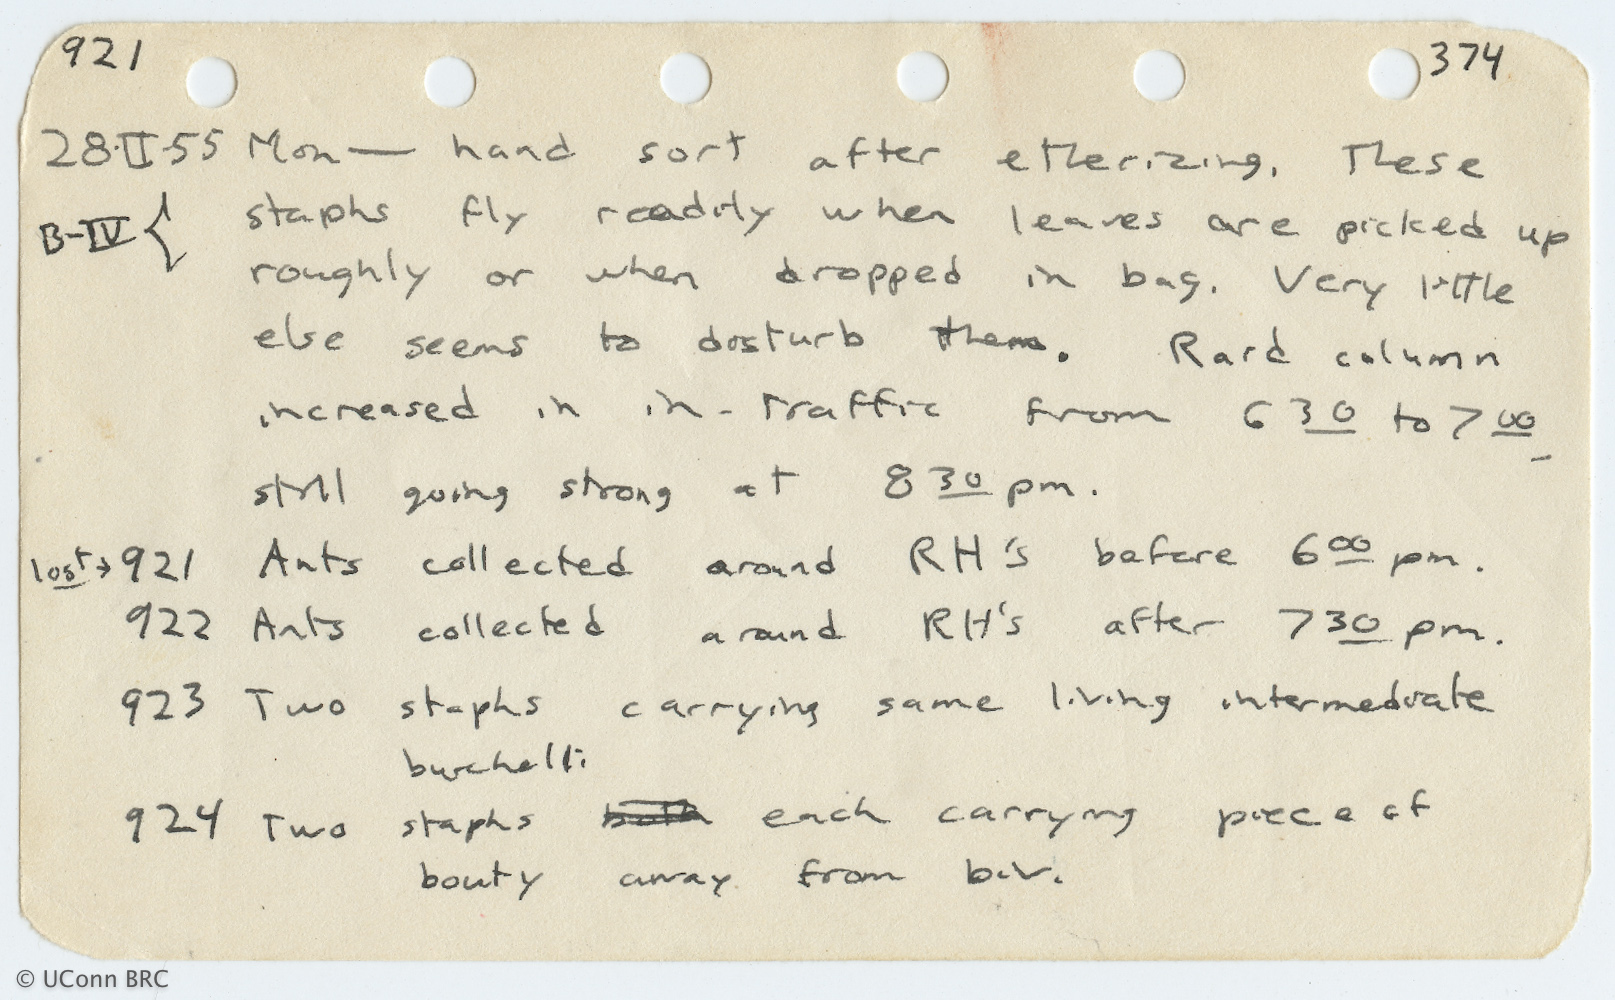 921 374
28·II·55 Mon— hand sort after etherizing. These
B-IV { staphs fly readily when leaves are picked up
roughly or when dropped in bag. Very little
else seems to disturb them. Raid column
increased in in-traffic from 6 30 to 7 00
still going strong at 8 30 pm.
lost → 921 Ants collected around RH's before 6 00 pm.
922 Ants collected around RH's after 7 30 pm.
923 Two staphs carrying same living intermediate
burchelli
924 Two staphs both each carrying piece of
bouty away from biv.
© UConn BRC